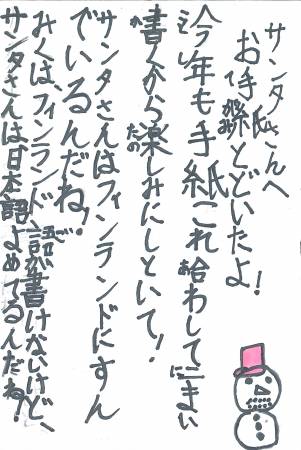 サンタさんへ
お手紙とどいたよ!
今年も手紙これ合わして二まい
書くから楽しみにしといて!
サンタさんはフィンランドにすん
でいるんだね!
みくは、フィンランド語が書けないけど、
サンタさんは日本語よめてるんだね!